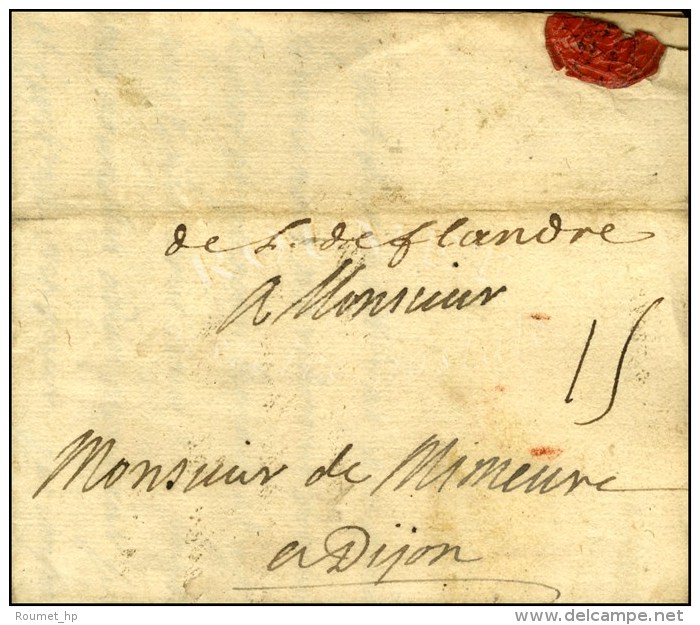 de L. de flandre
A Monsieur
15
Monsieur de Mimeure
a Dijon
Roumet_hp
www.delcampe.net